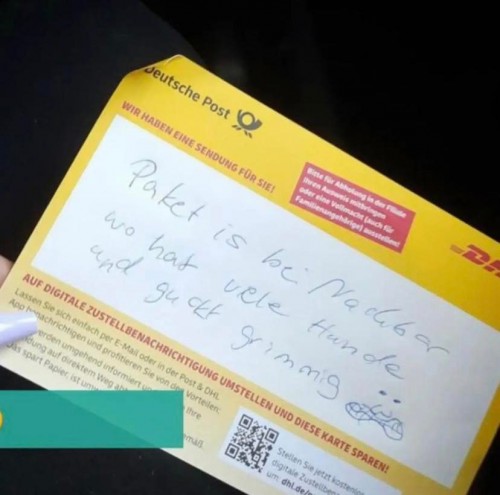 Deutsche Post
WIR HABEN EINE SENDUNG FÜR SIE!
Bitte für Abholung in der Filiale
Ihren Ausweis mitbringen
oder eine Vollmacht (auch für
Familienangehörige) ausstellen!
Paket is bei Nachbar
wo hat viele Hunde
und guckt grimmig
AUF DIGITALE ZUSTELLBENACHRICHTIGUNG UMSTELLEN UND DIESE KARTE SPAREN!
Lassen Sie sich einfach per E-Mail oder in der Post & DHL
App benachrichtigen und profitieren Sie von den Vorteilen:
werden umgehend informiert
auf direktem Weg
spart Papier, ist
Stellen Sie jetzt kostenlos
digitale
um dhl.de/